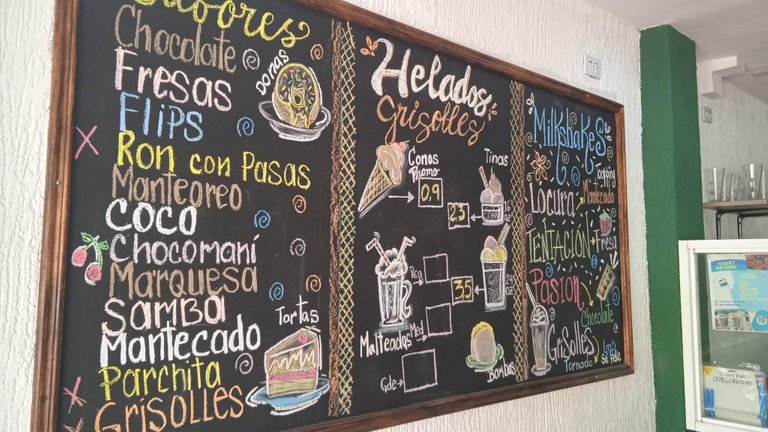 Sabores
Chocolate
Fresas
Flips
Ron con Pasas
Manteoreo
COCO
Chocomaní
Marquesa
SAMBA
Mantecado
Parchita
GRISOLLES
DONAS
Tortas
Helados
Grisolles
Conos
Promo
0,9
Tinas
2,3
Peq
3,5
Med
Gde
Malteadas
Bombas
Milkshakes
Topping
LOCURA
Mantecado
TENTACIÓN
Fresa
Pasión
Chocolate
GRISOLLES
Tornado
Sé Feliz
YOGURT NATURAL